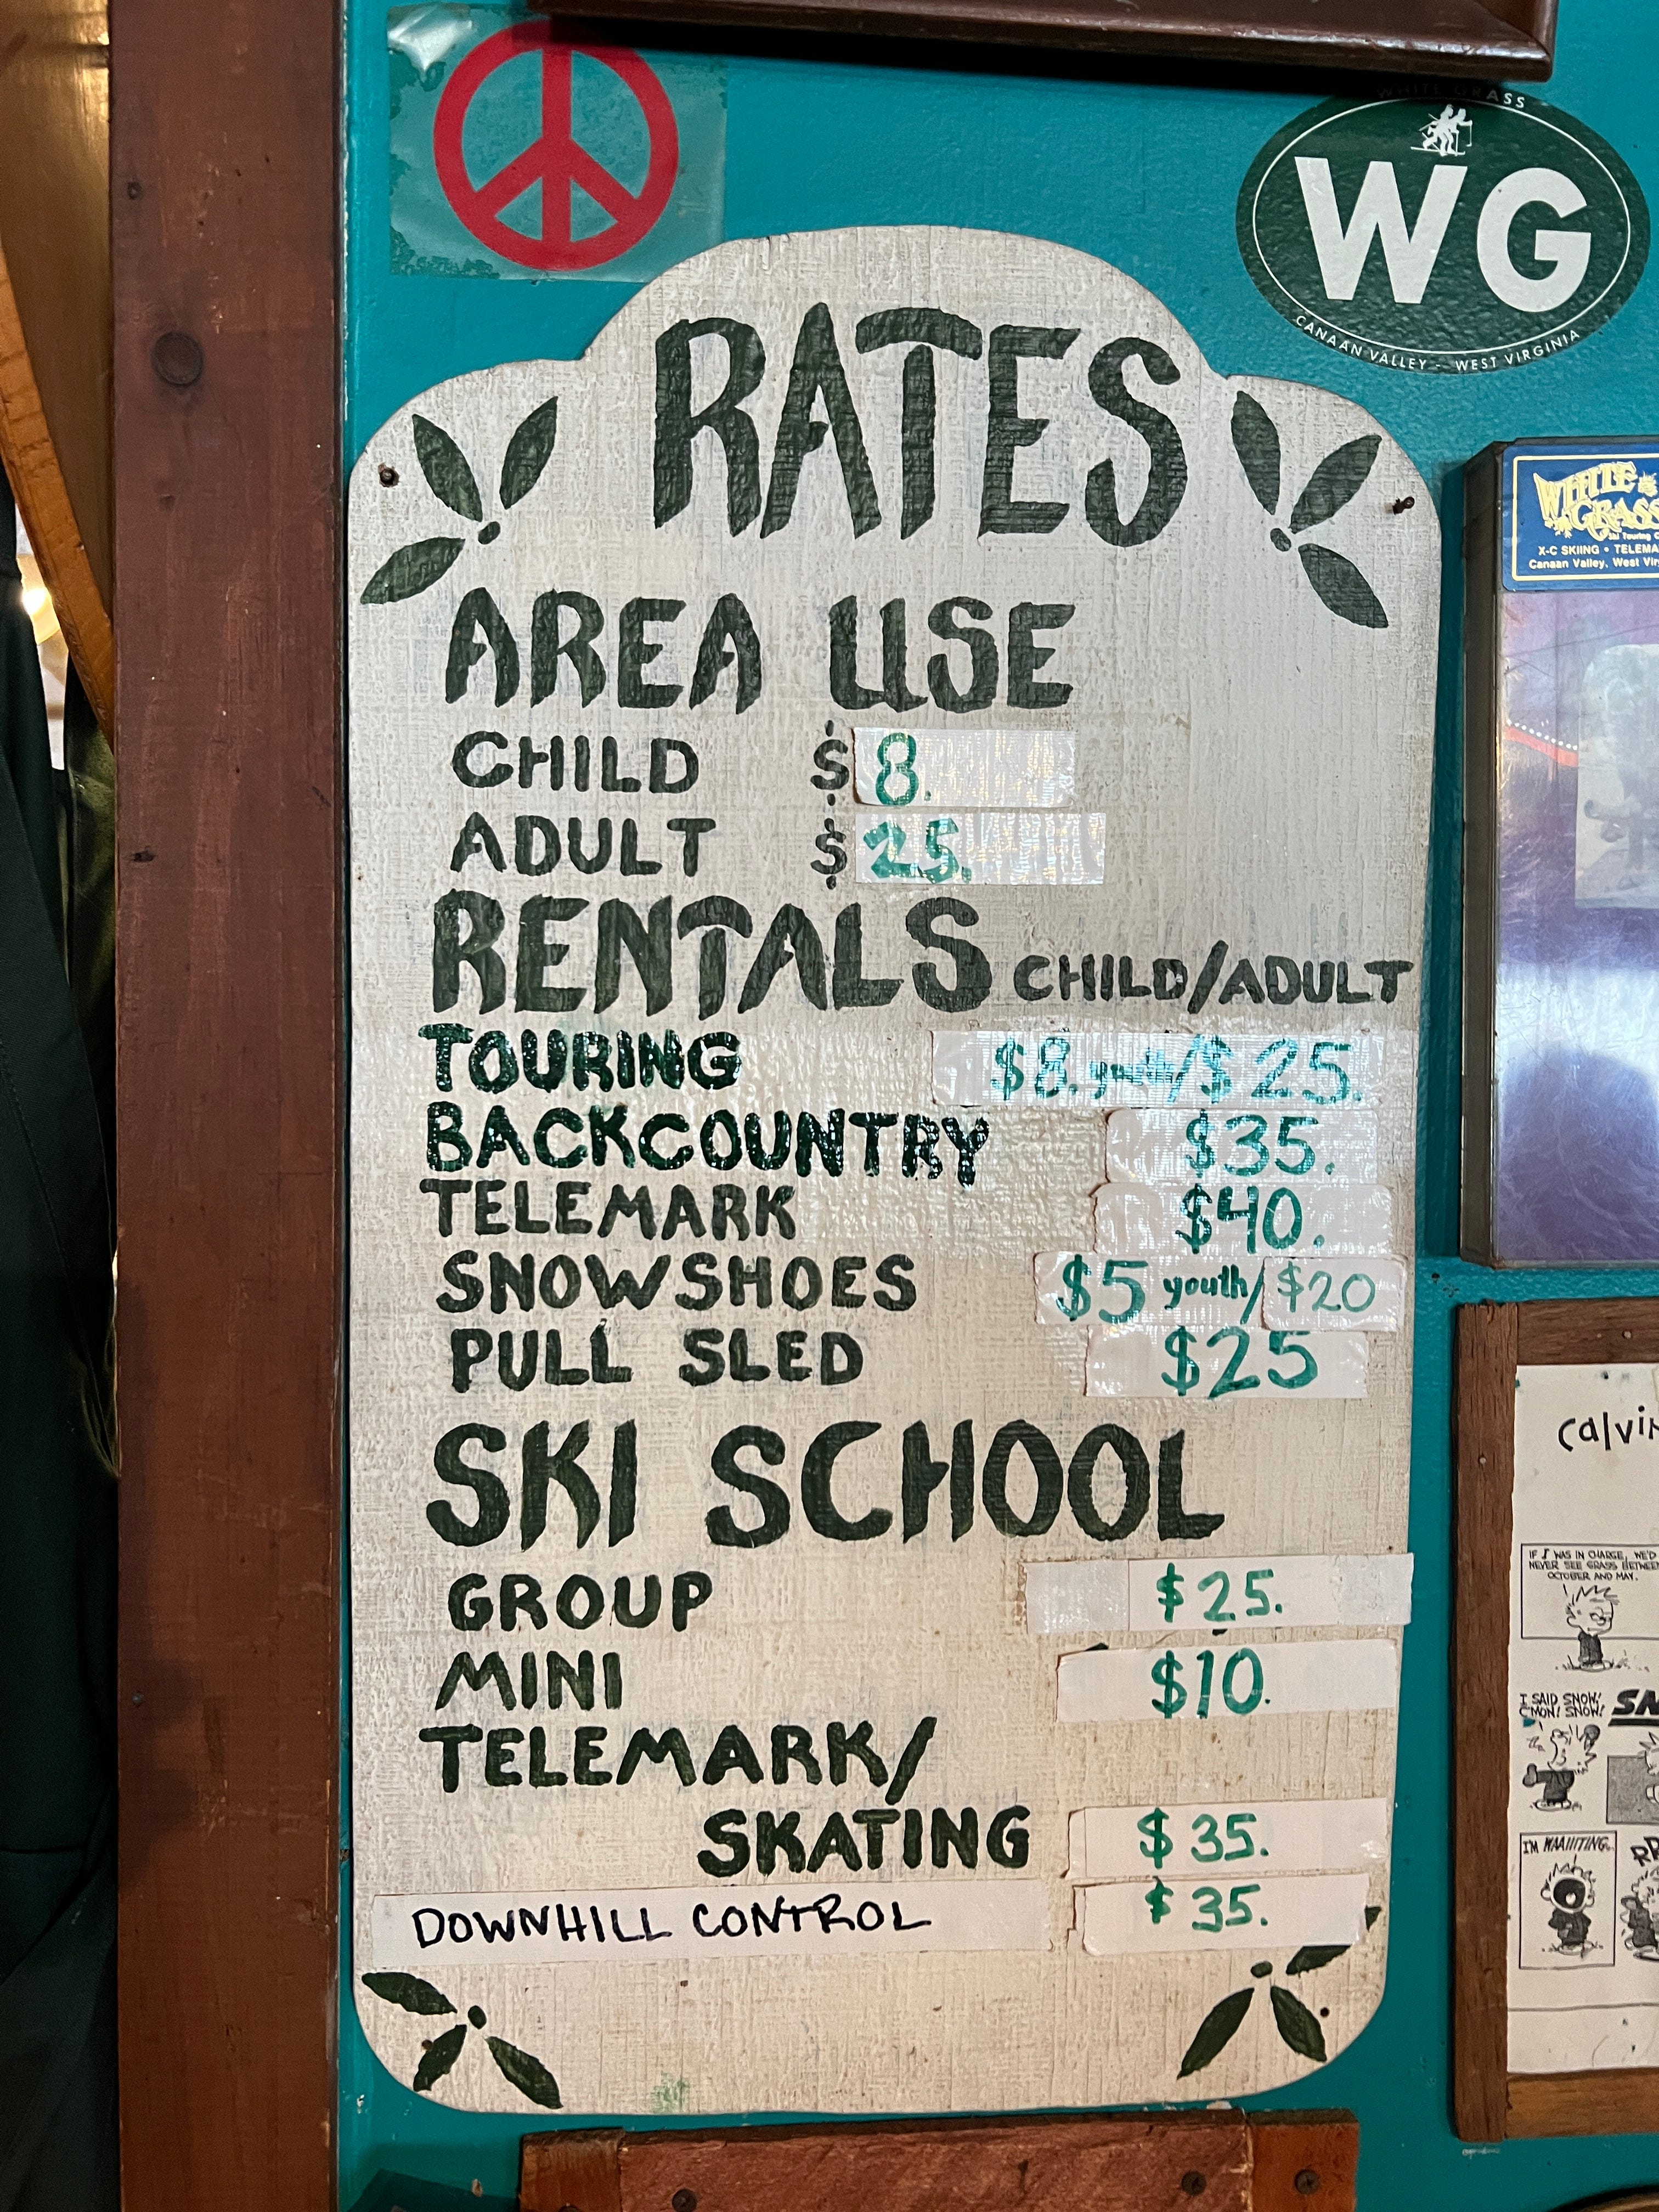 WHITE GRASS
WG
CANAAN VALLEY - WEST VIRGINIA
RATES
AREA USE
CHILD $8.
ADULT $25.
RENTALS CHILD/ADULT
TOURING $8. youth/$25.
BACKCOUNTRY $35.
TELEMARK $40.
SNOWSHOES $5 youth/$20
PULL SLED $25
SKI SCHOOL
GROUP $25.
MINI $10.
TELEMARK/
SKATING $35.
DOWNHILL CONTROL $35.
WHITE
GRASS
Ski Touring
X-C SKIING •
Canaan Valley, West
IF I WAS IN CHARGE, WE'D
NEVER SEE GRASS BETWEEN
OCTOBER AND MAY.
I SAID SNOW!
C'MON! SNOW!
I'M WAAIIITING.